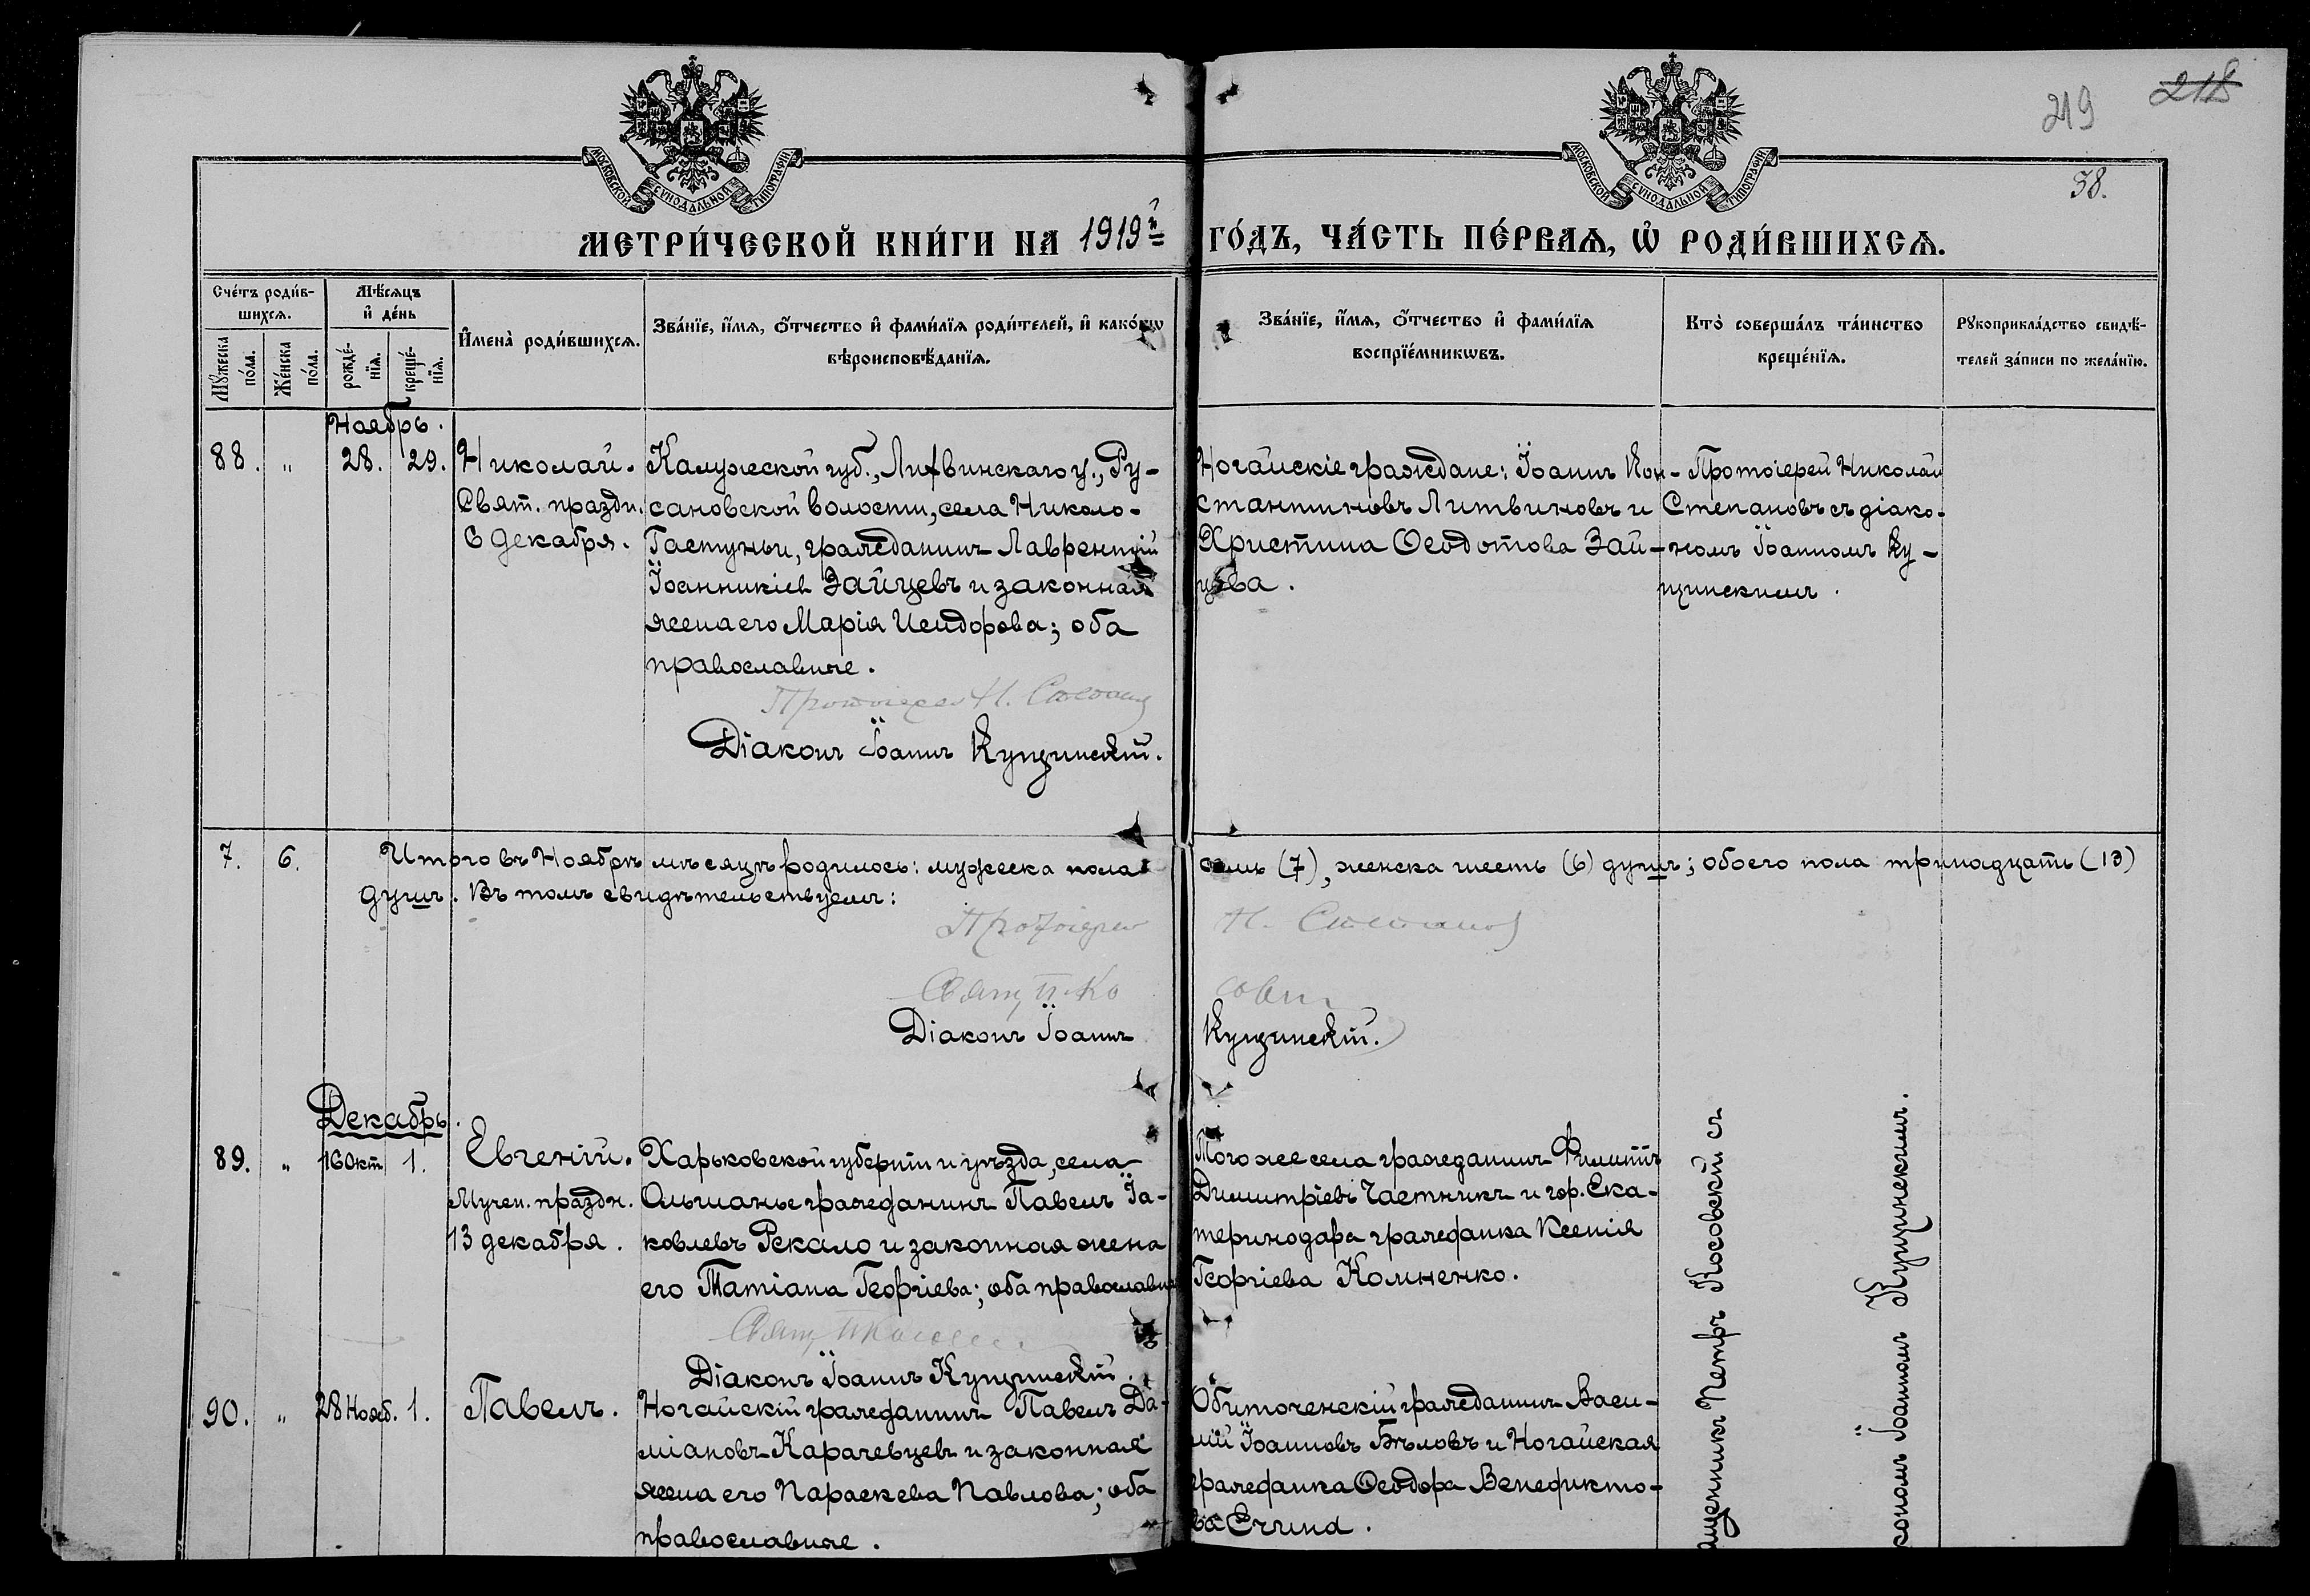 МОСКОВСКОЙ СѴНОДАЛЬНОЙ ТИПОГРАФІИ
МОСКОВСКОЙ СѴНОДАЛЬНОЙ ТИПОГРАФІИ
219
218
58.
МЕТРИ́ЧЕСКОЙ КНИ́ГИ НА 1919й ГО́ДЪ, ЧА́СТЬ ПЕ́РВАѦ, Ѡ҆ РОДИ́ВШИХСѦ.
Сче́тъ роди́в-
шихсѧ.
Мꙋ́жеска
по́ла.
Же́нска
по́ла.
Мѣ́сѧцъ
и҆ де́нь
рожде́-
нїѧ.
креще́-
нїѧ.
И҆мена̀ роди́вшихсѧ.
Зва́нїе, и҆́мѧ, ѻ҆́тчество и҆ фами́лїѧ роди́телей, и҆ како́гѡ
вѣроисповѣ́данїѧ.
Зва́нїе, и҆́мѧ, ѻ҆́тчество и҆ фами́лїѧ
воспрїе́мникѡвъ.
Кто̀ соверша́лъ та́инство
креще́нїѧ.
Рꙋкоприкла́дство свидѣ́-
телей за́писи по жела́нїю.
Ноябрь.
88. „ 28. 29.
Николай.
Свят. праздн.
6 декабря.
Калужеской губ., Лихвинскаго у., Ру-
сановской волости, села Николо-
Гастуньи, гражданинъ Лаврентій
Іоанникіев Зайцевъ и законная
жена его Марія Исидорова; оба
православные.
Протоіерей Н. Степанов
Діаконъ Іоаннъ Кущинскій.
Ногайскіе граждане: Іоаннъ Кон-
стантиновъ Литвиновъ и
Христина Ѳеодотова Зай-
цева.
Протоіерей Николай
Степановъ съ діако-
номъ Іоанномъ Ку-
щинскимъ.
7. 6. Итого въ Ноябрѣ мѣсяцѣ родилось: мужеска пола семь (7), женска шесть (6) душъ; обоего пола тринадцать (13)
душъ. Въ томъ свидѣтельствуемъ:
Протоіерей Н. Степанов
Свящ. П. Косовск
Діаконъ Іоаннъ Кущинскій.
Декабрь.
89. „ 16 Окт. 1.
Евгеній.
Мучен. праздн.
13 декабря.
Харьковской губерніи и уѣзда, села
Ольшанье гражданинъ Павелъ Іа-
ковлевъ Рекало и законная жена
его Татіана Георгіева; оба православн
Діаконъ Іоаннъ Кущинскій.
Того же села гражданинъ Филиппъ
Димитріевъ Частникъ и гор. Ека-
теринодара гражданка Ксенія
Георгіева Колненко.
90. „ 28 Нояб. 1.
Павелъ.
Ногайскій гражданинъ Павелъ Да-
міановъ Карачевцевъ и законная
жена его Параскева Павлова; оба
православные.
Обиточенскій гражданинъ Васи-
лій Іоанновъ Бѣловъ и Ногайская
гражданка Ѳеодора Венедикто-
ва
ященникъ Петръ Косовскій съ
кономъ Іоанномъ Кущинскимъ.